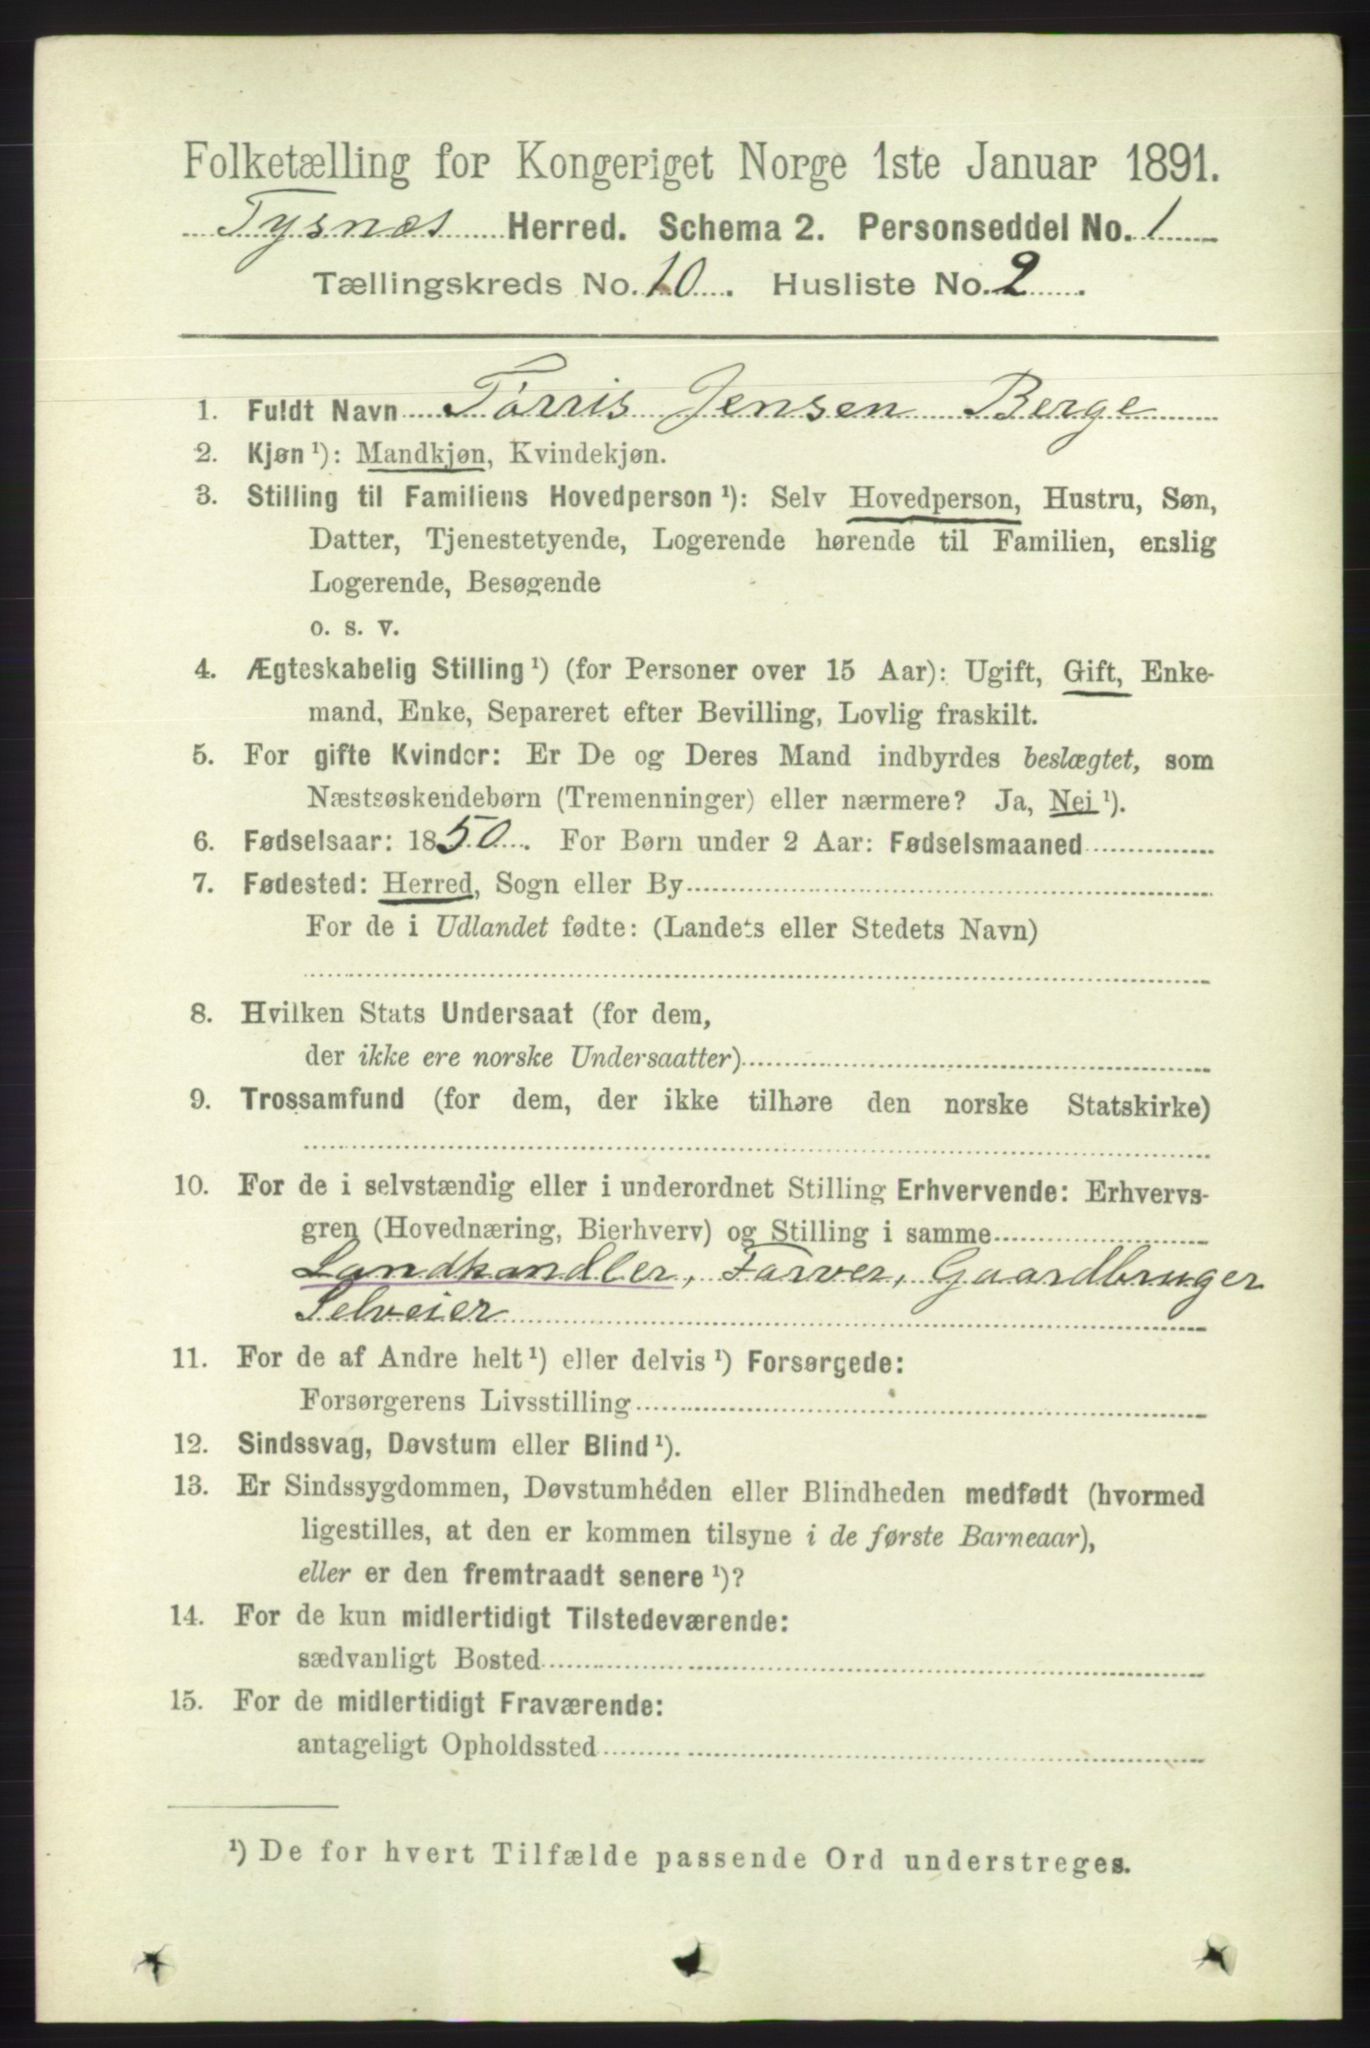 Folketælling for Kongeriget Norge 1ste Januar 1891.
Tysnæs Herred. Schema 2. Personseddel No. 1
Tællingskreds No. 10. Husliste No. 2.
1. Fuldt Navn Tørris Jensen Berge
2. Kjøn ¹): Mandkjøn, Kvindekjøn.
3. Stilling til Familiens Hovedperson ¹): Selv Hovedperson, Hustru, Søn,
Datter, Tjenestetyende, Logerende hørende til Familien, enslig
Logerende, Besøgende
o. s. v.
4. Ægteskabelig Stilling ¹) (for Personer over 15 Aar): Ugift, Gift, Enke-
mand, Enke, Separeret efter Bevilling, Lovlig fraskilt.
5. For gifte Kvinder: Er De og Deres Mand indbyrdes beslægtet, som
Næstsøskendebørn (Tremenninger) eller nærmere? Ja, Nei ¹).
6. Fødselsaar: 1850. For Børn under 2 Aar: Fødselsmaaned
7. Fødested: Herred, Sogn eller By
For de i Udlandet fødte: (Landets eller Stedets Navn)
8. Hvilken Stats Undersaat (for dem,
der ikke ere norske Undersaatter)
9. Trossamfund (for dem, der ikke tilhøre den norske Statskirke)
10. For de i selvstændig eller i underordnet Stilling Erhvervende: Erhvervs-
gren (Hovednæring, Bierhverv) og Stilling i samme
Landhandler, Farver, Gaardbruger
Selveier
11. For de af Andre helt ¹) eller delvis ¹) Forsørgede:
Forsørgerens Livsstilling
12. Sindssvag, Døvstum eller Blind ¹).
13. Er Sindssygdommen, Døvstumheden eller Blindheden medfødt (hvormed
ligestilles, at den er kommen tilsyne i de første Barneaar),
eller er den fremtraadt senere ¹)?
14. For de kun midlertidigt Tilstedeværende:
sædvanligt Bosted
15. For de midlertidigt Fraværende:
antageligt Opholdssted
¹) De for hvert Tilfælde passende Ord understreges.